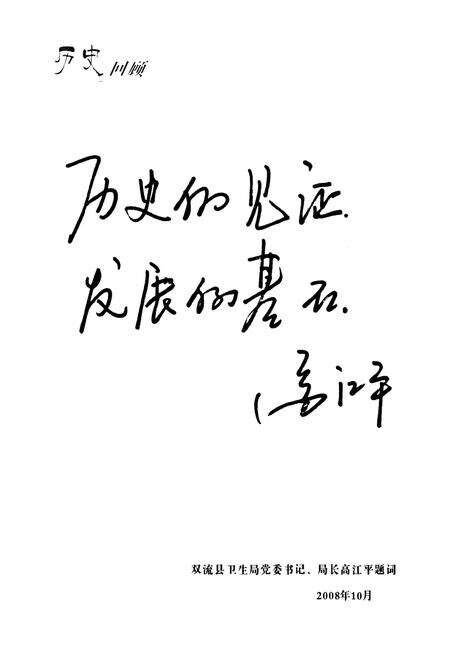 历史回顾
历史的见证.
发展的基石.
高江平
双流县卫生局党委书记、局长高江平题词
2008年10月